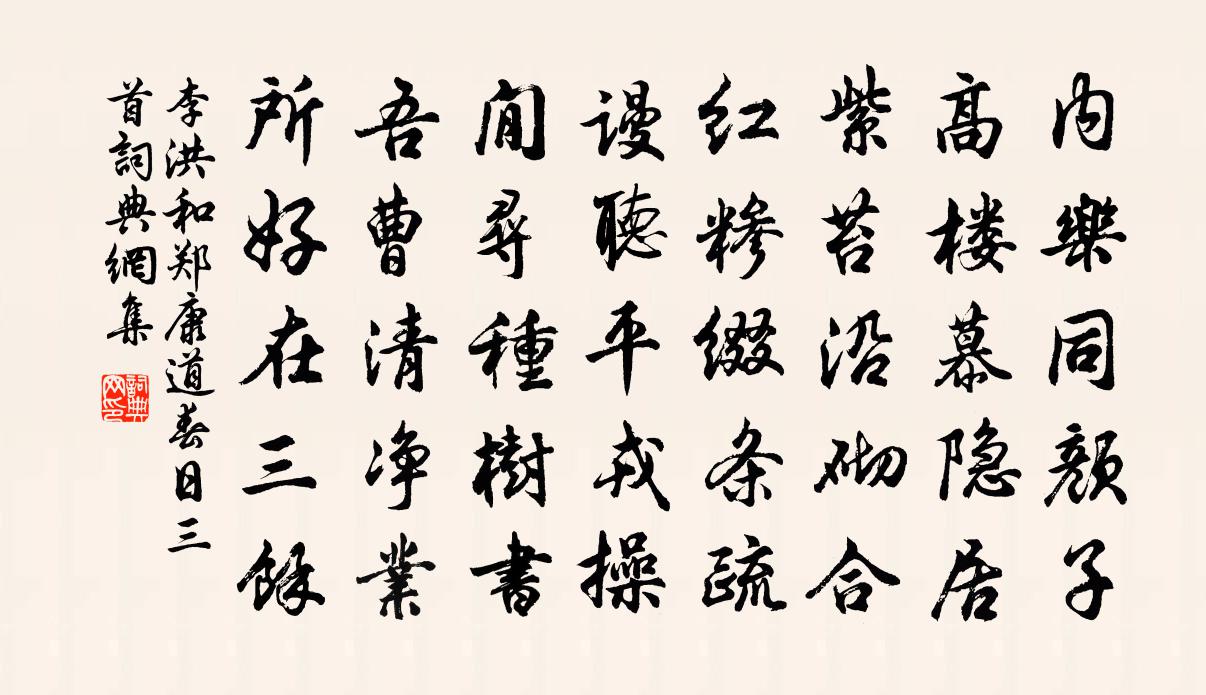 内樂同顔子
高楼慕隐居
紫苔沿砌合
红糁缀条疏
谩聽平戎操
閒尋種樹書
吾曹清净業
所好在三餘
李洪和郑康道春日三
首詞典網集
詞典网印